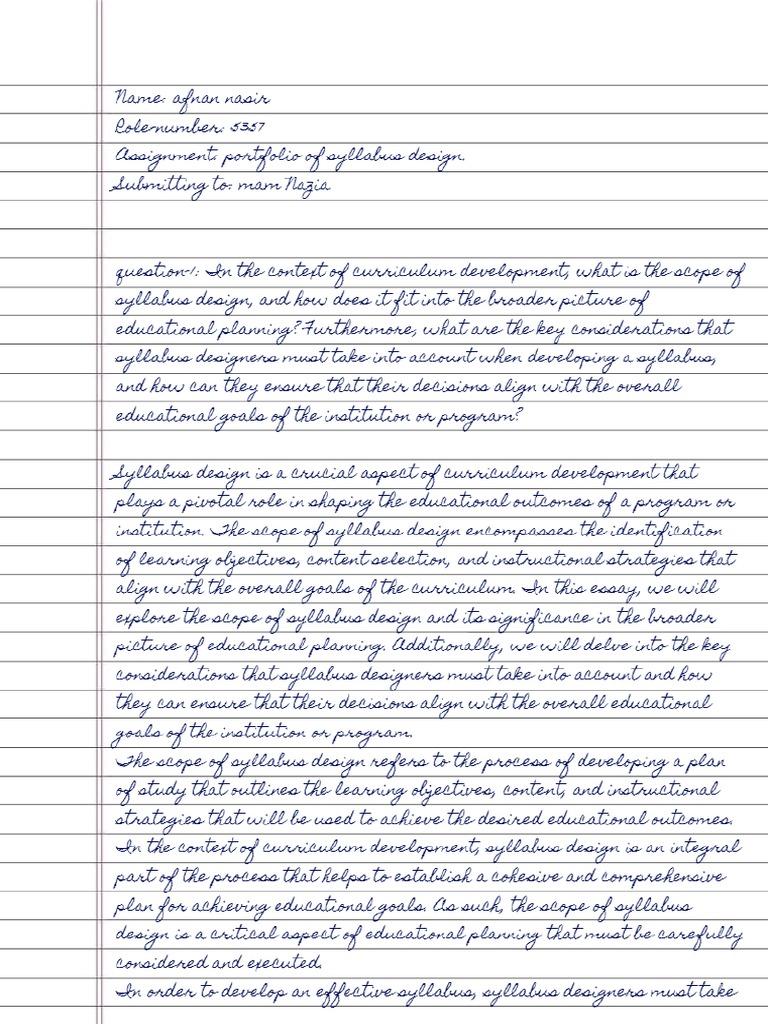 Name: afnan nasir
Role number: 5357
Assignment: portfolio of syllabus design.
Submitting to: mam Nazia
question-1: In the context of curriculum development, what is the scope of
syllabus design, and how does it fit into the broader picture of
educational planning? Furthermore, what are the key considerations that
syllabus designers must take into account when developing a syllabus,
and how can they ensure that their decisions align with the overall
educational goals of the institution or program?
Syllabus design is a crucial aspect of curriculum development that
plays a pivotal role in shaping the educational outcomes of a program or
institution. The scope of syllabus design encompasses the identification
of learning objectives, content selection, and instructional strategies that
align with the overall goals of the curriculum. In this essay, we will
explore the scope of syllabus design and its significance in the broader
picture of educational planning. Additionally, we will delve into the key
considerations that syllabus designers must take into account and how
they can ensure that their decisions align with the overall educational
goals of the institution or program.
The scope of syllabus design refers to the process of developing a plan
of study that outlines the learning objectives, content, and instructional
strategies that will be used to achieve the desired educational outcomes.
In the context of curriculum development, syllabus design is an integral
part of the process that helps to establish a cohesive and comprehensive
plan for achieving educational goals. As such, the scope of syllabus
design is a critical aspect of educational planning that must be carefully
considered and executed.
In order to develop an effective syllabus, syllabus designers must take